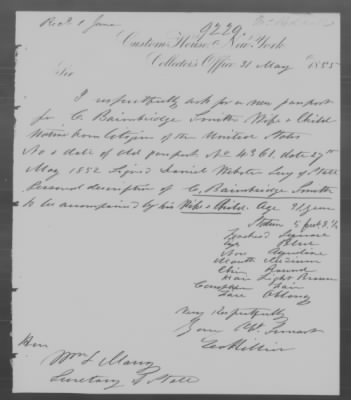 Recd 1 June
9229
Custom House, New York
Collector's Office 31 May 1855
Sir
I respectfully ask for a new passport
for C. Bainbridge Smith Wife & Child
Native born Citizen of the United States
No & date of old passport No 4361. date 27th
May 1852 Signed Daniel Webster Secy of State
Personal description of C. Bainbridge Smith
to be accompanied by his Wife & Child. Age
Stature 5 feet
Forehead Square
Eyes Blue
Nose Aquiline
Mouth Medium
Chin Round
Hair Light Brown
Complexion Fair
Face Oblong
Very Respectfully
Your Obt. Servant
Hon
Wm L Marcy
Secretary of State